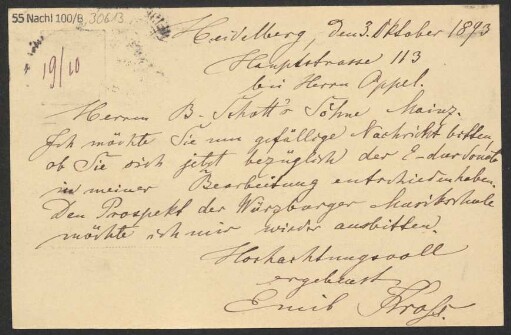 55 Nachl 100/B, 30613
19/10
Heidelberg, den 3. Oktober 1893
Hauptstrasse 113
bei Herrn Appel.
Herrn B. Schott's Söhne Mainz.
Ich möchte Sie um gefällige Nachricht bitten,
ob Sie sich jetzt bezüglich der E-dur Sonate
in meiner Bearbeitung entschieden haben.
Den Prospekt der Würzburger Musikschule
möchte ich mir wieder ausbitten.
Hochachtungsvoll
ergebenst
Emil Kross.